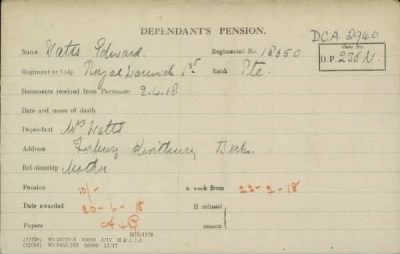 DEPENDANT'S PENSION.
DCA 3940
Name Watts Edward. Regimental No. 18050
Case No.
D.P. 236 N.
Regiment or Ship Royal Warwick 1st Rank Pte.
Documents received from Permanent 2.4.18
Date and cause of death
Dependant Mrs Watts
Address Kintbury Berks.
Relationship Mother
Pension 10/- a week from 22-2-18
Date awarded 20-6-18 If refused
Papers reason